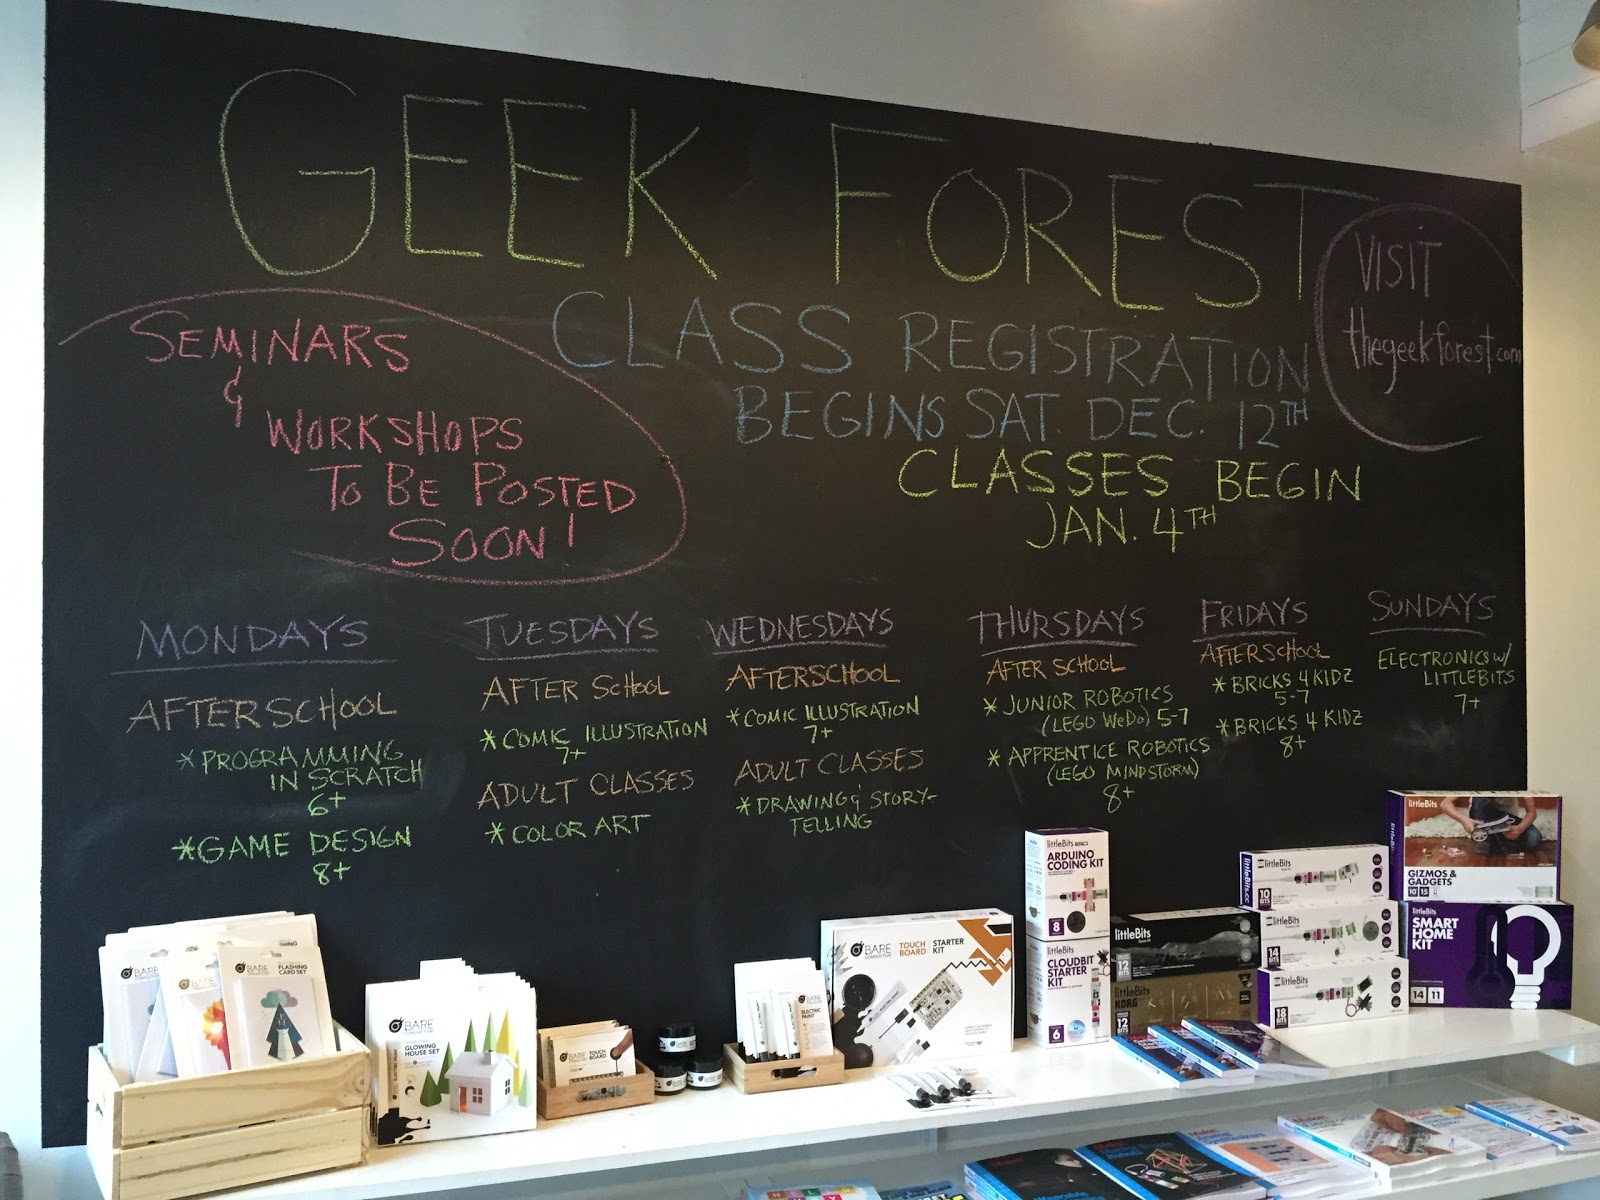 GEEK FOREST
SEMINARS
&
WORKSHOPS
TO BE POSTED
SOON!
CLASS REGISTRATION
BEGINS SAT. DEC. 12TH
CLASSES BEGIN
JAN. 4TH
VISIT
thegeekforest.com
MONDAYS
AFTERSCHOOL
* PROGRAMMING
IN SCRATCH
6+
* GAME DESIGN
8+
TUESDAYS
AFTER SCHOOL
* COMIC ILLUSTRATION
7+
ADULT CLASSES
* COLOR ART
WEDNESDAYS
AFTERSCHOOL
* COMIC ILLUSTRATION
7+
ADULT CLASSES
* DRAWING & STORY-
TELLING
THURSDAYS
AFTER SCHOOL
* JUNIOR ROBOTICS
(LEGO WeDo) 5-7
* APPRENTICE ROBOTICS
(LEGO MINDSTORM)
8+
FRIDAYS
AFTERSCHOOL
* BRICKS 4 KIDZ
5-7
* BRICKS 4 KIDZ
8+
SUNDAYS
ELECTRONICS W/
LITTLEBITS
7+
BARE
FLASHING
CARD SET
BARE
CONDUCTIVE
GLOWING
HOUSE SET
BARE
TOUCH
BOARD
BARE
ELECTRIC
PAINT
BARE
CONDUCTIVE
TOUCH
BOARD
STARTER
KIT
littleBits
ARDUINO
CODING KIT
8
littleBits
CLOUDBIT
STARTER
KIT
6
littleBits
12
littleBits
KORG
12
BITS
littleBits
littleBits.cc
10
BITS
littleBits
14
BITS
littleBits
18
BITS
littleBits
GIZMOS &
GADGETS
15
littleBits
SMART
HOME
KIT
14 11